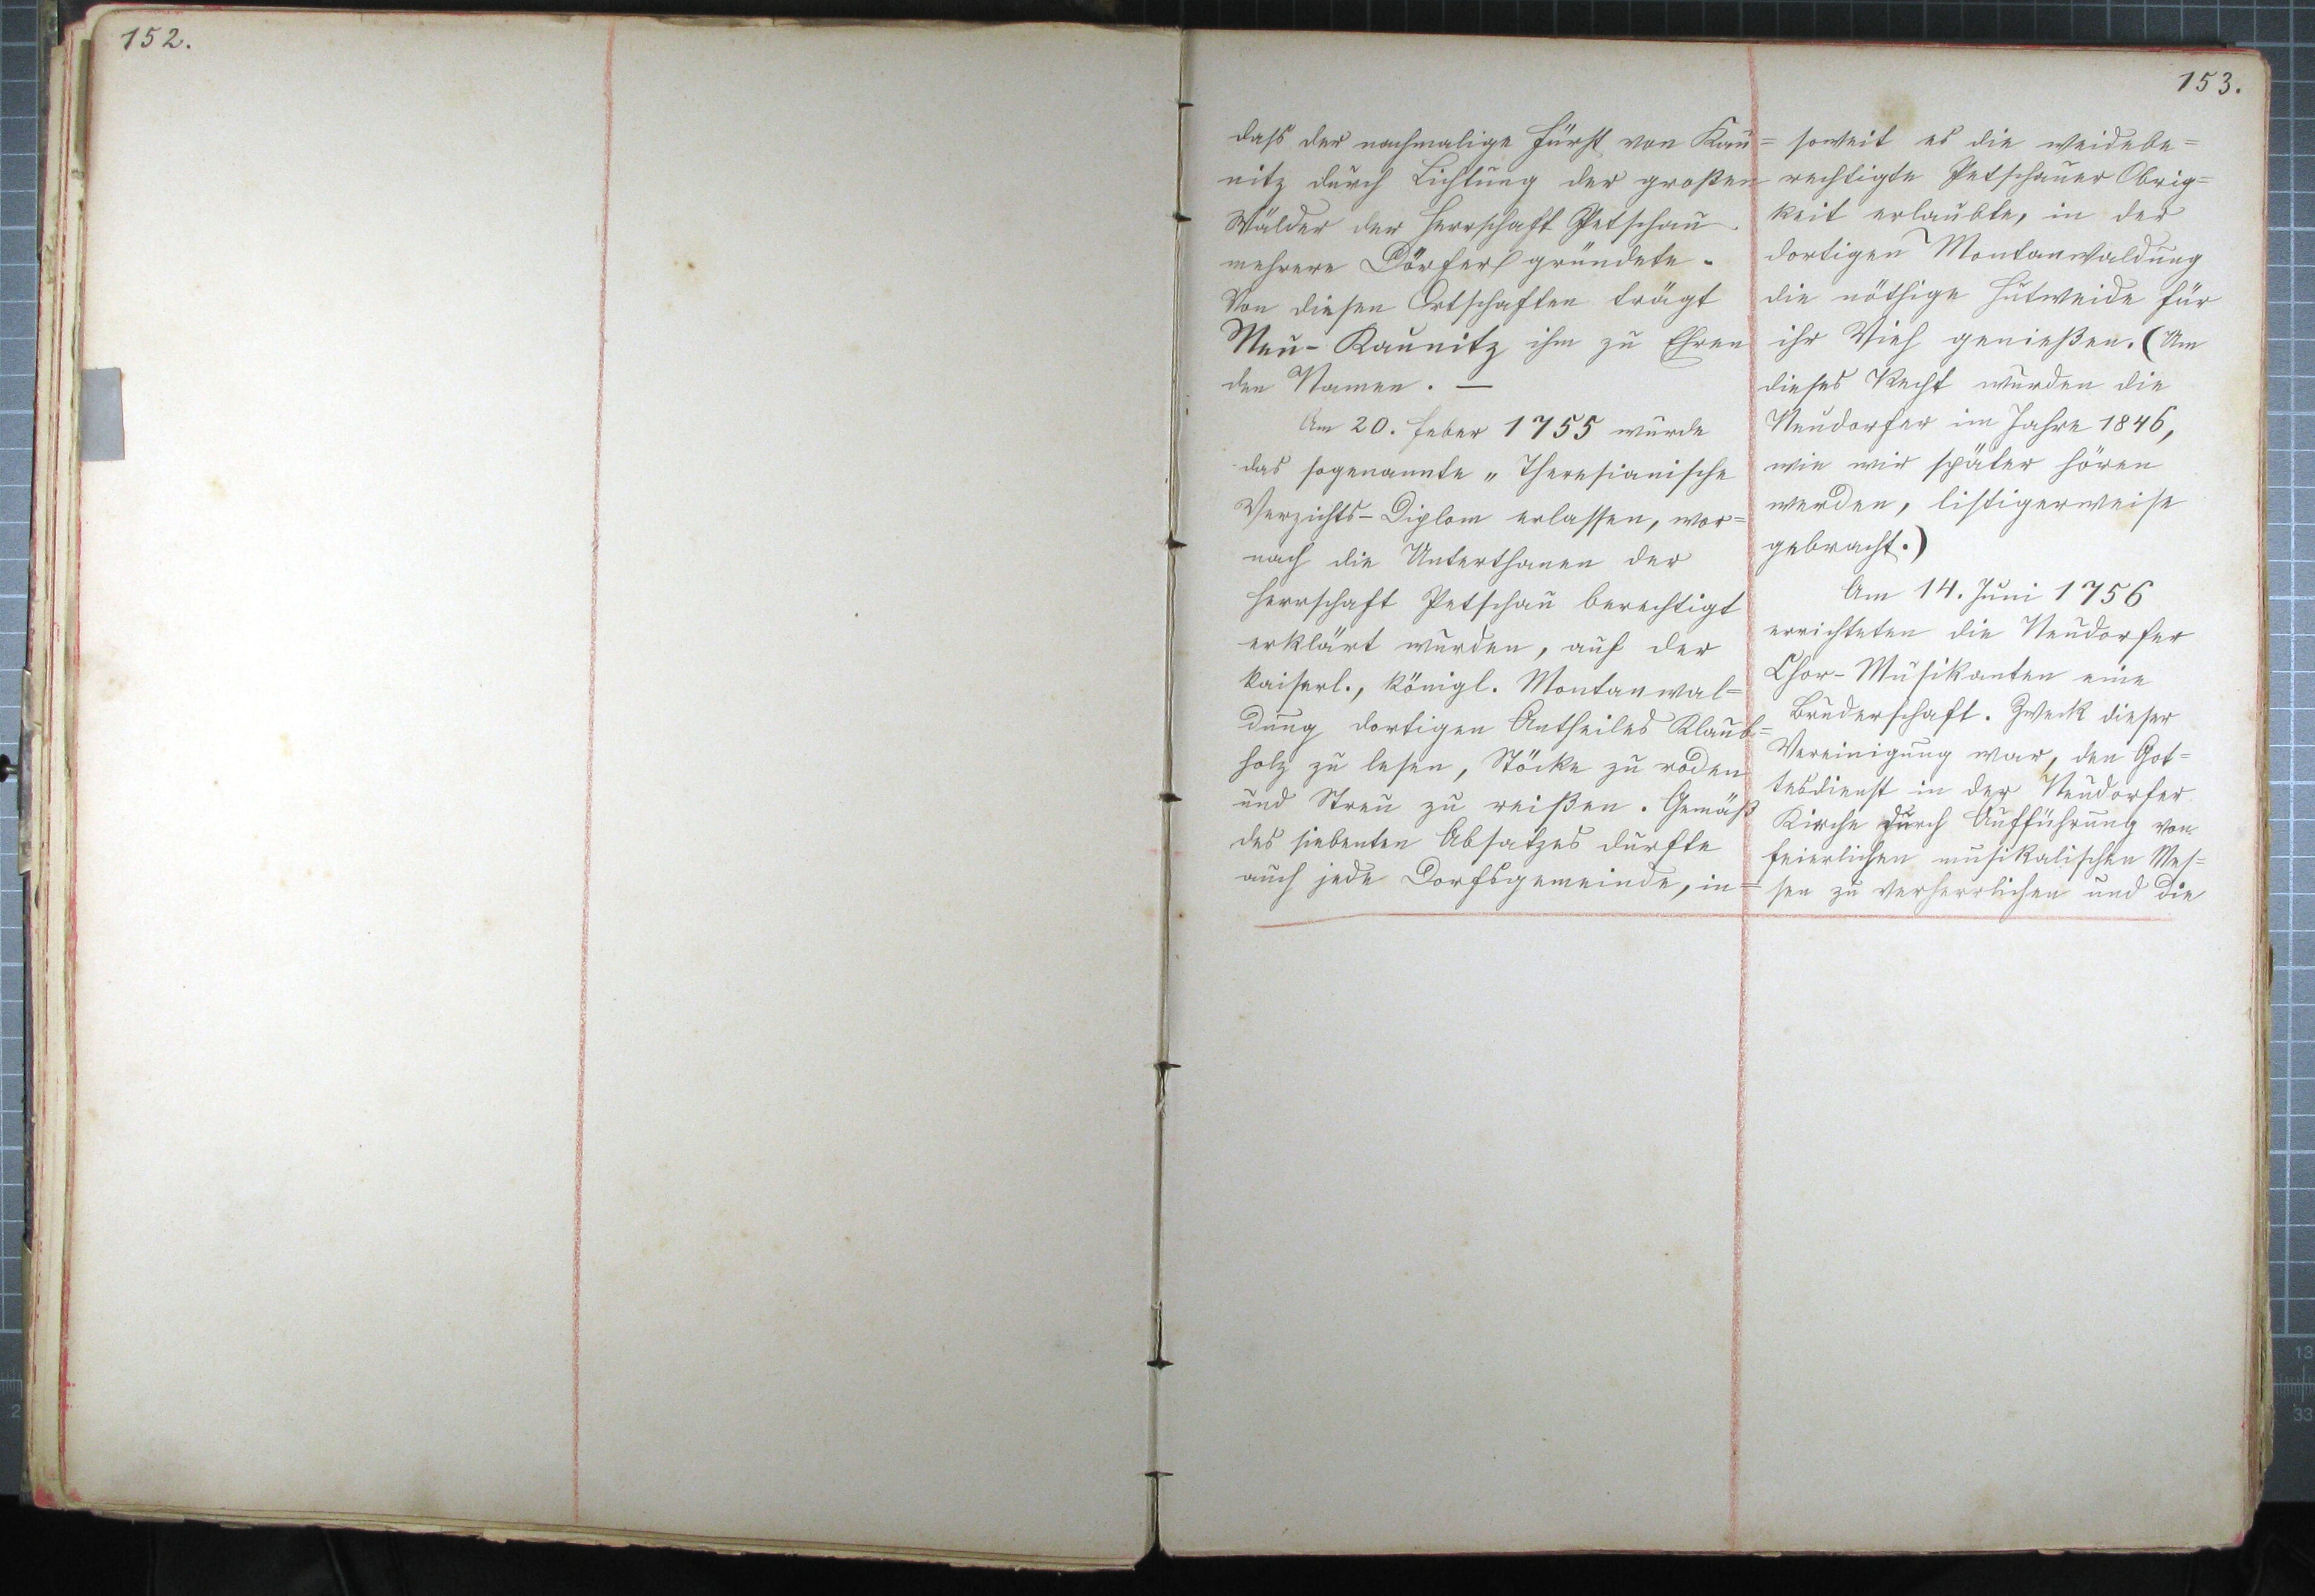 152.
153.
dass der nachmalige Fürst von Kau=
nitz durch Lichtung der großen
Wälder der Herrschaft Petschau
mehrere Dörfer gründete.
Von diesen Ortschaften trägt
Neu-Kaunitz ihm zu Ehren
den Namen. —
Am 20. Feber 1755 wurde
das sogenannte „Theresianische
Verzichts-Diplom erlassen, wor=
nach die Unterthanen der
Herrschaft Petschau berechtigt
erklärt wurden, auf der
kaiserl., königl. Montanwal=
dung dortigen Antheiles Klaub=
holz zu lesen, Stöcke zu roden
und Streu zu reißen. Gemäß
des siebenten Absatzes durfte
auch jede Dorfsgemeinde, in=
soweit es die weidebe=
rechtigte Petschauer Obrig=
keit erlaubte, in der
dortigen Montanwaldung
die nöthige Hutweide für
ihr Vieh genießen. (Um
dieses Recht wurden die
Neudorfer im Jahre 1846,
wie wir später hören
werden, listigerweise
gebracht.)
Am 14. Juni 1756
errichteten die Neudorfer
Chor-Musikanten eine
Bruderschaft. Zweck dieser
Vereinigung war, den Got=
tesdienst in der Neudorfer
Kirche durch Aufführung von
feierlichen musikalischen Mes=
sen zu verherrlichen und die